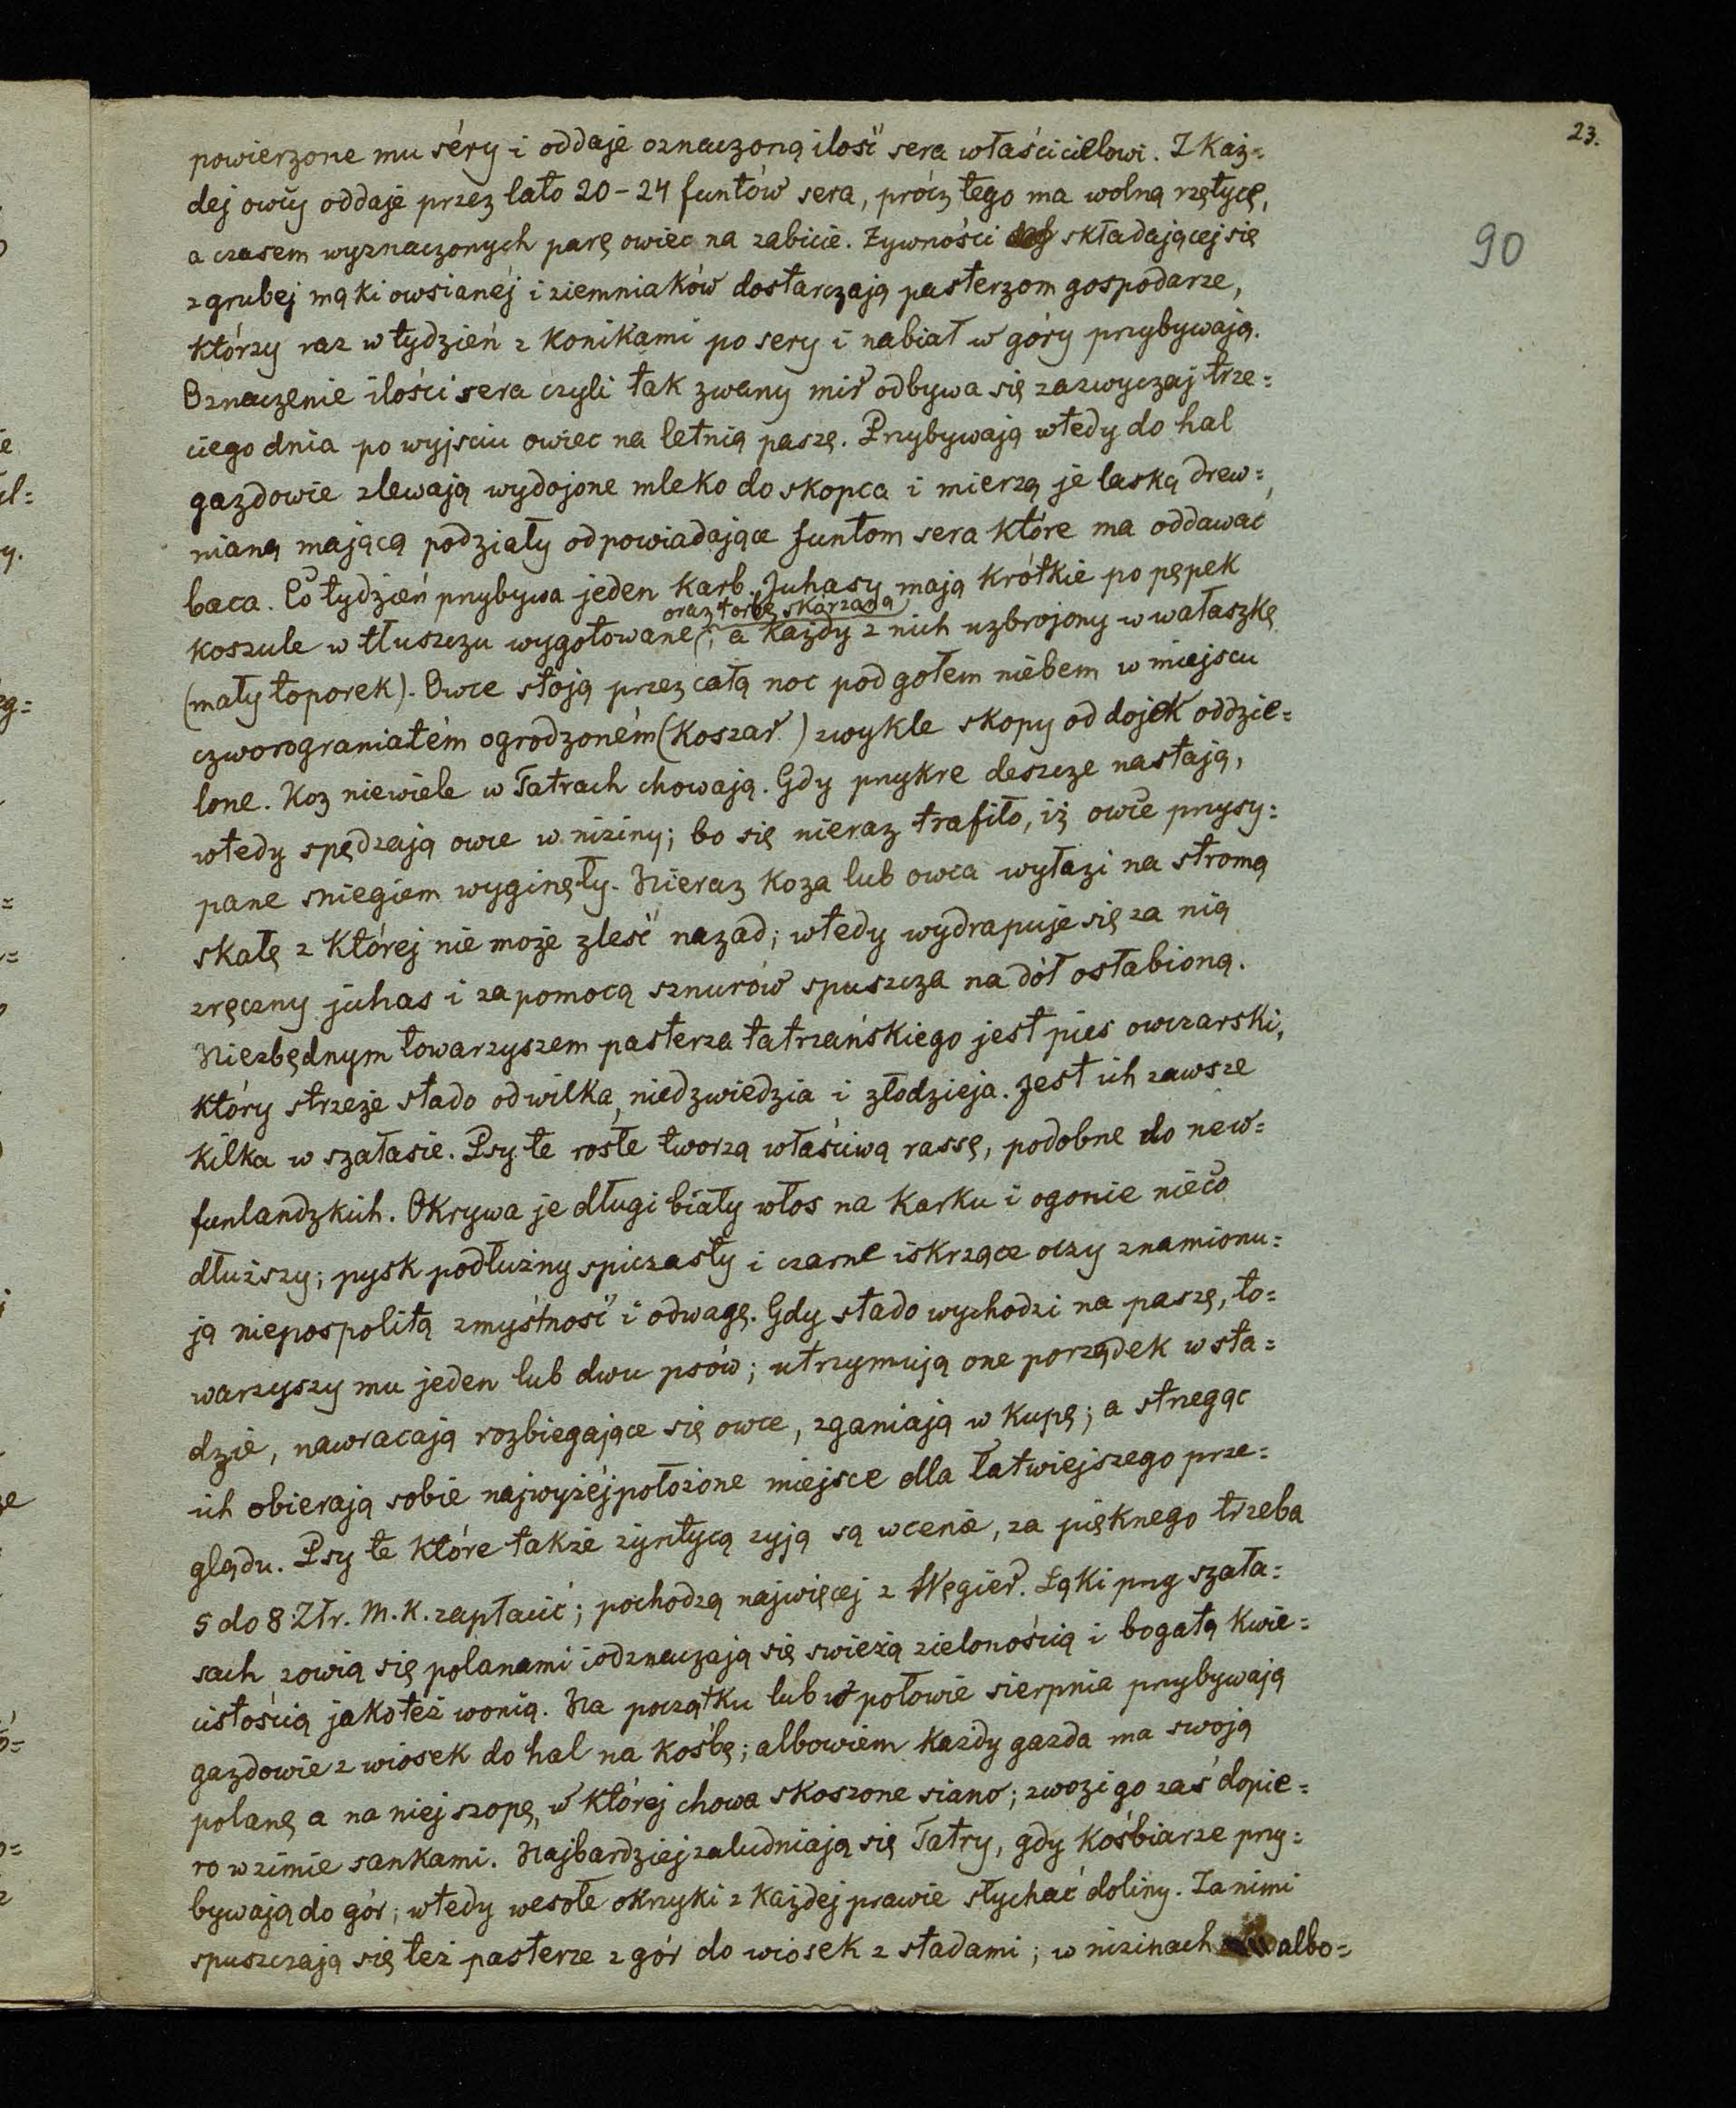 23.
90
powierzone mu séry i oddaje oznaczoną ilość sera właścicielowi. Z każ=
dej owcy oddaje przez lato 20-24 funtów sera, prócz tego ma wolną rzętycę,
a czasem wyznaczonych parę owiec na zabicie. Żywności składającej się
z grubej mąki owsianéj i ziemniaków dostarczają pasterzom gospodarze,
którzy raz w tydzień z konikami po sery i nabiał w góry przybywają.
Oznaczenie ilości sera czyli tak zwany mir odbywa się zazwyczaj trze=
ciego dnia po wyjsciu owiec na letnią paszę. Przybywają wtedy do hal
gazdowie zlewają wydojone mleko do skopca i mierzą je laską drew=
nianą mającą podziały odpowiadające funtom sera które ma oddawać
baca. Co tydzień przybywa jeden karb. Juhasy mają krótkie po pępek
oraz torbę skórzaną
koszule w tłuszczu wygotowane, a każdy z nich uzbrojony w wałaszkę
(mały toporek). Owce stoją przez całą noc pod gołem niebem w miejscu
czworograniatém ogrodzoném (Koszar) zwykle skopy od dojek oddzie=
lone. Koz niewiele w Tatrach chowają. Gdy przykre deszcze nastają,
wtedy spędzają owce w niziny; bo się nieraz trafiło, iż owce przysy=
pane sniegiem wyginęły. Nieraz koza lub owca wyłazi na stromą
skałę z której nie może zleść nazad; wtedy wydrapuje się za nią
zręczny juhas i zapomocą sznurów spuszcza na dół osłabioną.
Niezbędnym towarzyszem pasterza tatrzańskiego jest pies owczarski,
który strzeże stado od wilka, niedzwiedzia i złodzieja. Jest ich zawsze
kilka w szałasie. Psy te rosłe tworzą właściwą rassę, podobne do new=
funlandzkich. Okrywa je długi biały włos na karku i ogonie nieco
dłuższy; pysk podłużny spiczasty i czarne iskrzące oczy znamionu=
ją niepospolitą zmyślność i odwagę. Gdy stado wychodzi na paszę, to=
warzyszy mu jeden lub dwu psów; utrzymują one porządek w sta=
dzie, nawracają rozbiegające się owce, zganiają w kupę; a strzegąc
ich obierają sobie najwyżéj położone miejsce dla łatwiejszego prze=
glądu. Psy te które także żyntycą żyją są w cenie, za pięknego trzeba
5 do 8 Złr. M. K. zapłacić; pochodzą najwięcej z Węgier. Łąki przy szała=
sach zowią się polanami i odznaczają się swieżą zielonością i bogatą kwie=
cistością jakoteż wonią. Na początku lub w połowie sierpnia przybywają
gazdowie z wiosek do hal na kośbę; albowiem każdy gazda ma swoją
polanę a na niej szopę, w której chowa skoszone siano; zwozi go zaś dopie=
ro w zimie sankami. Najbardziej zaludniają się Tatry, gdy kośbiarze przy=
bywają do gór; wtedy wesołe okrzyki z każdej prawie słychać doliny. Za nimi
spuszczają się też pasterze z gór do wiosek z stadami; w nizinach albo=